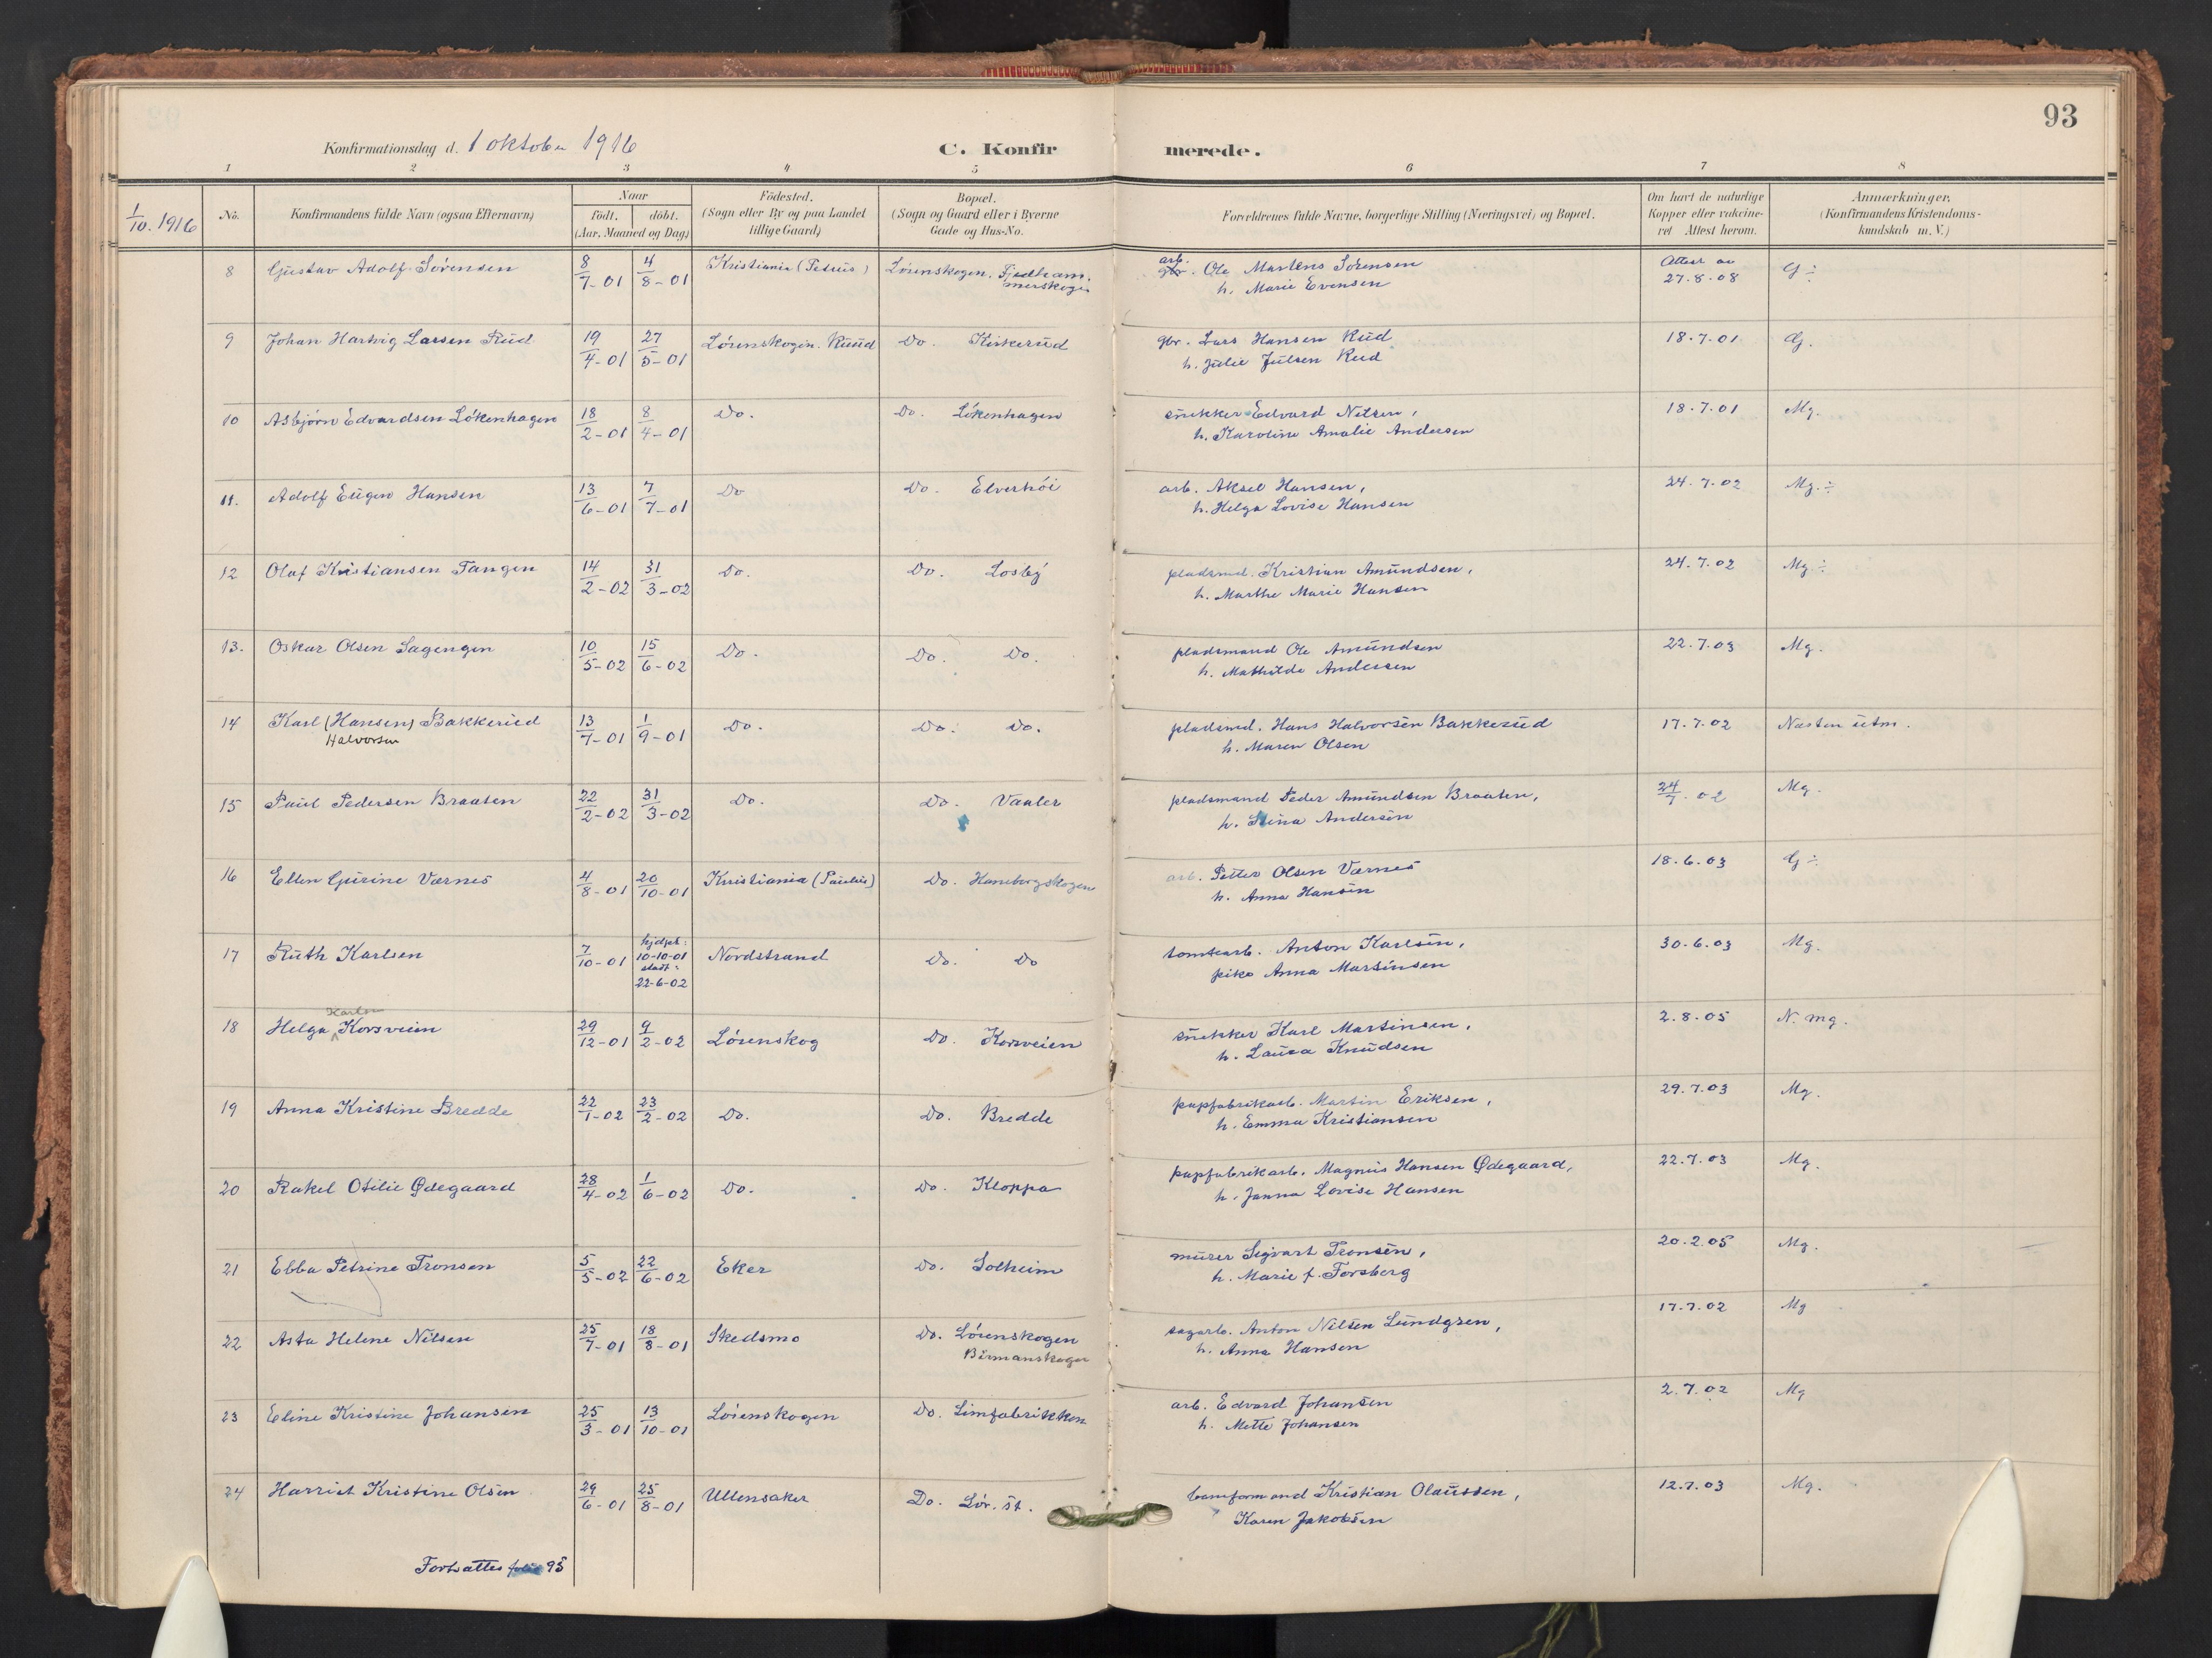 93
Konfirmationsdag d. 1 oktober 1916
C. Konfirmerede.
1 2 3 4 5 6 7 8
1/10. 1916
No.
Konfirmandens fulde Navn (ogsaa Efternavn)
Naar
födt. döbt.
(Aar, Maaned og Dag)
Födested.
(Sogn eller By og paa Landet
tillige Gaard)
Bopæl.
(Sogn og Gaard eller i Byerne
Gade og Hus-No.
Forældrenes fulde Navne, borgerlige Stilling (Næringsvei) og Bopæl.
Om havt de naturlige
Kopper eller vakcine-
ret Attest herom.
Anmærkninger,
(Konfirmandens Kristendoms-
kundskab m. V.)
8 Gustav Adolf Sörensen 8/7-01 4/8-01 Kristiania (Petrus) Lörenskogen, Fjedham-
merskogen
arb.
gbr. Ole Martens Sörensen
h. Marie Evensen
Attest av
27.8.08 G ÷
9 Johan Hartvig Larsen Rud 19/4-01 27/5-01 Lörenskogen. Ruud Do. Kiskerud
gbr. Lars Hansen Rud
h. Julie Julsen Rud
18.7.01 G.
10 Asbjörn Edvardsen Lökenhagen 18/2-01 8/4-01 Do. Do. Lökenhagen
snekker Edvard Nilsen,
h. Karoline Amalie Andersen
18.7.01 Mg.
11. Adolf Eugen Hansen 13/6-01 7/7-01 Do Do. Elverhöi
arb. Aksel Hansen,
h. Helga Lovise Hansen
24.7.02 Mg. ÷
12 Olaf Kristiansen Tangen 14/2-02 31/3-02 Do. Do. Losby
pladsmd. Kristian Amundsen,
h. Marthe Marie Hansen
24.7.02 Mg. ÷
13. Oskar Olsen Sagengen 10/5-02 15/6-02 Do. Do. Do.
pladsmand Ole Amundsen
h. Mathilde Andersen
22.7.03 Mg.
14 Karl (Hansen) Bakkerud 13/7-01 1/9-01 Do. Do. Do.
Halvorsen
pladsmd. Hans Halvorsen Bakkerud
h. Maren Olsen
17.7.02 Næsten utm.
15 Paul Pedersen Braaten 22/2-02 31/3-02 Do. Do. Vaaler
pladsmand Peder Amundsen Braaten,
h. Stina Andersen
24/7.02 Mg.
16 Ellen Gurine Værnes 4/8-01 20/10-01 Kristiania (Paulus) Do. Haneborgskogen
arb. Petter Olsen Værnes
h. Anna Hansen
18.6.03 G ÷
17 Ruth Karlsen 7/10-01 hjdpt:
10-10-01
stadf:
22-6-02 Nordstrand Do. Do
tomtearb. Anton Karlsen,
pike Anna Martinsen
30.6.03 Mg.
Karlsen
18 Helga Korsveien 29/12-01 9/2-02 Lörenskog Do. Korsveien
snekker Karl Martinsen,
h. Laura Knudsen
2.8.05 N. mg.
19 Anna Kristine Bredde 22/1-02 23/2-02 Do. Do. Bredde
papfabrikarb. Martin Eriksen,
h. Emma Kristiansen
29.7.03 Mg.
20 Rakel Otilie Ødegaard 28/4-02 1/6-02 Do. Do. Kloppa
papfabrikarb. Magnus Hansen Ødegaard,
h. Janna Lovise Hansen
22.7.03 Mg.
21 Ebba Petrine Tronsen 5/5-02 22/6-02 Eker Do. Solheim
murer Segvart Tronsen,
h. Marie f. Forsberg
20.2.05 Mg.
22 Asta Helene Nilsen 25/7-01 18/8-01 Skedsmo Do. Lörenskogen
Birmanskogen
sagarb. Anton Nilsen Lundgren,
h. Anna Hansen
17.7.02 Mg
23 Eline Kristine Johansen 25/3-01 13/10-01 Lörenskogen Do. Limfabrikken
arb. Edvard Johansen
h. Mette Johansen
2.7.02 Mg
24 Harriet Kristine Olsen 29/6-01 25/8-01 Ullensaker Do. Lör. st.
baneformand Kristian Olaussen,
Karen Jakobsen
12.7.03 Mg.
Fortsættes folio 95